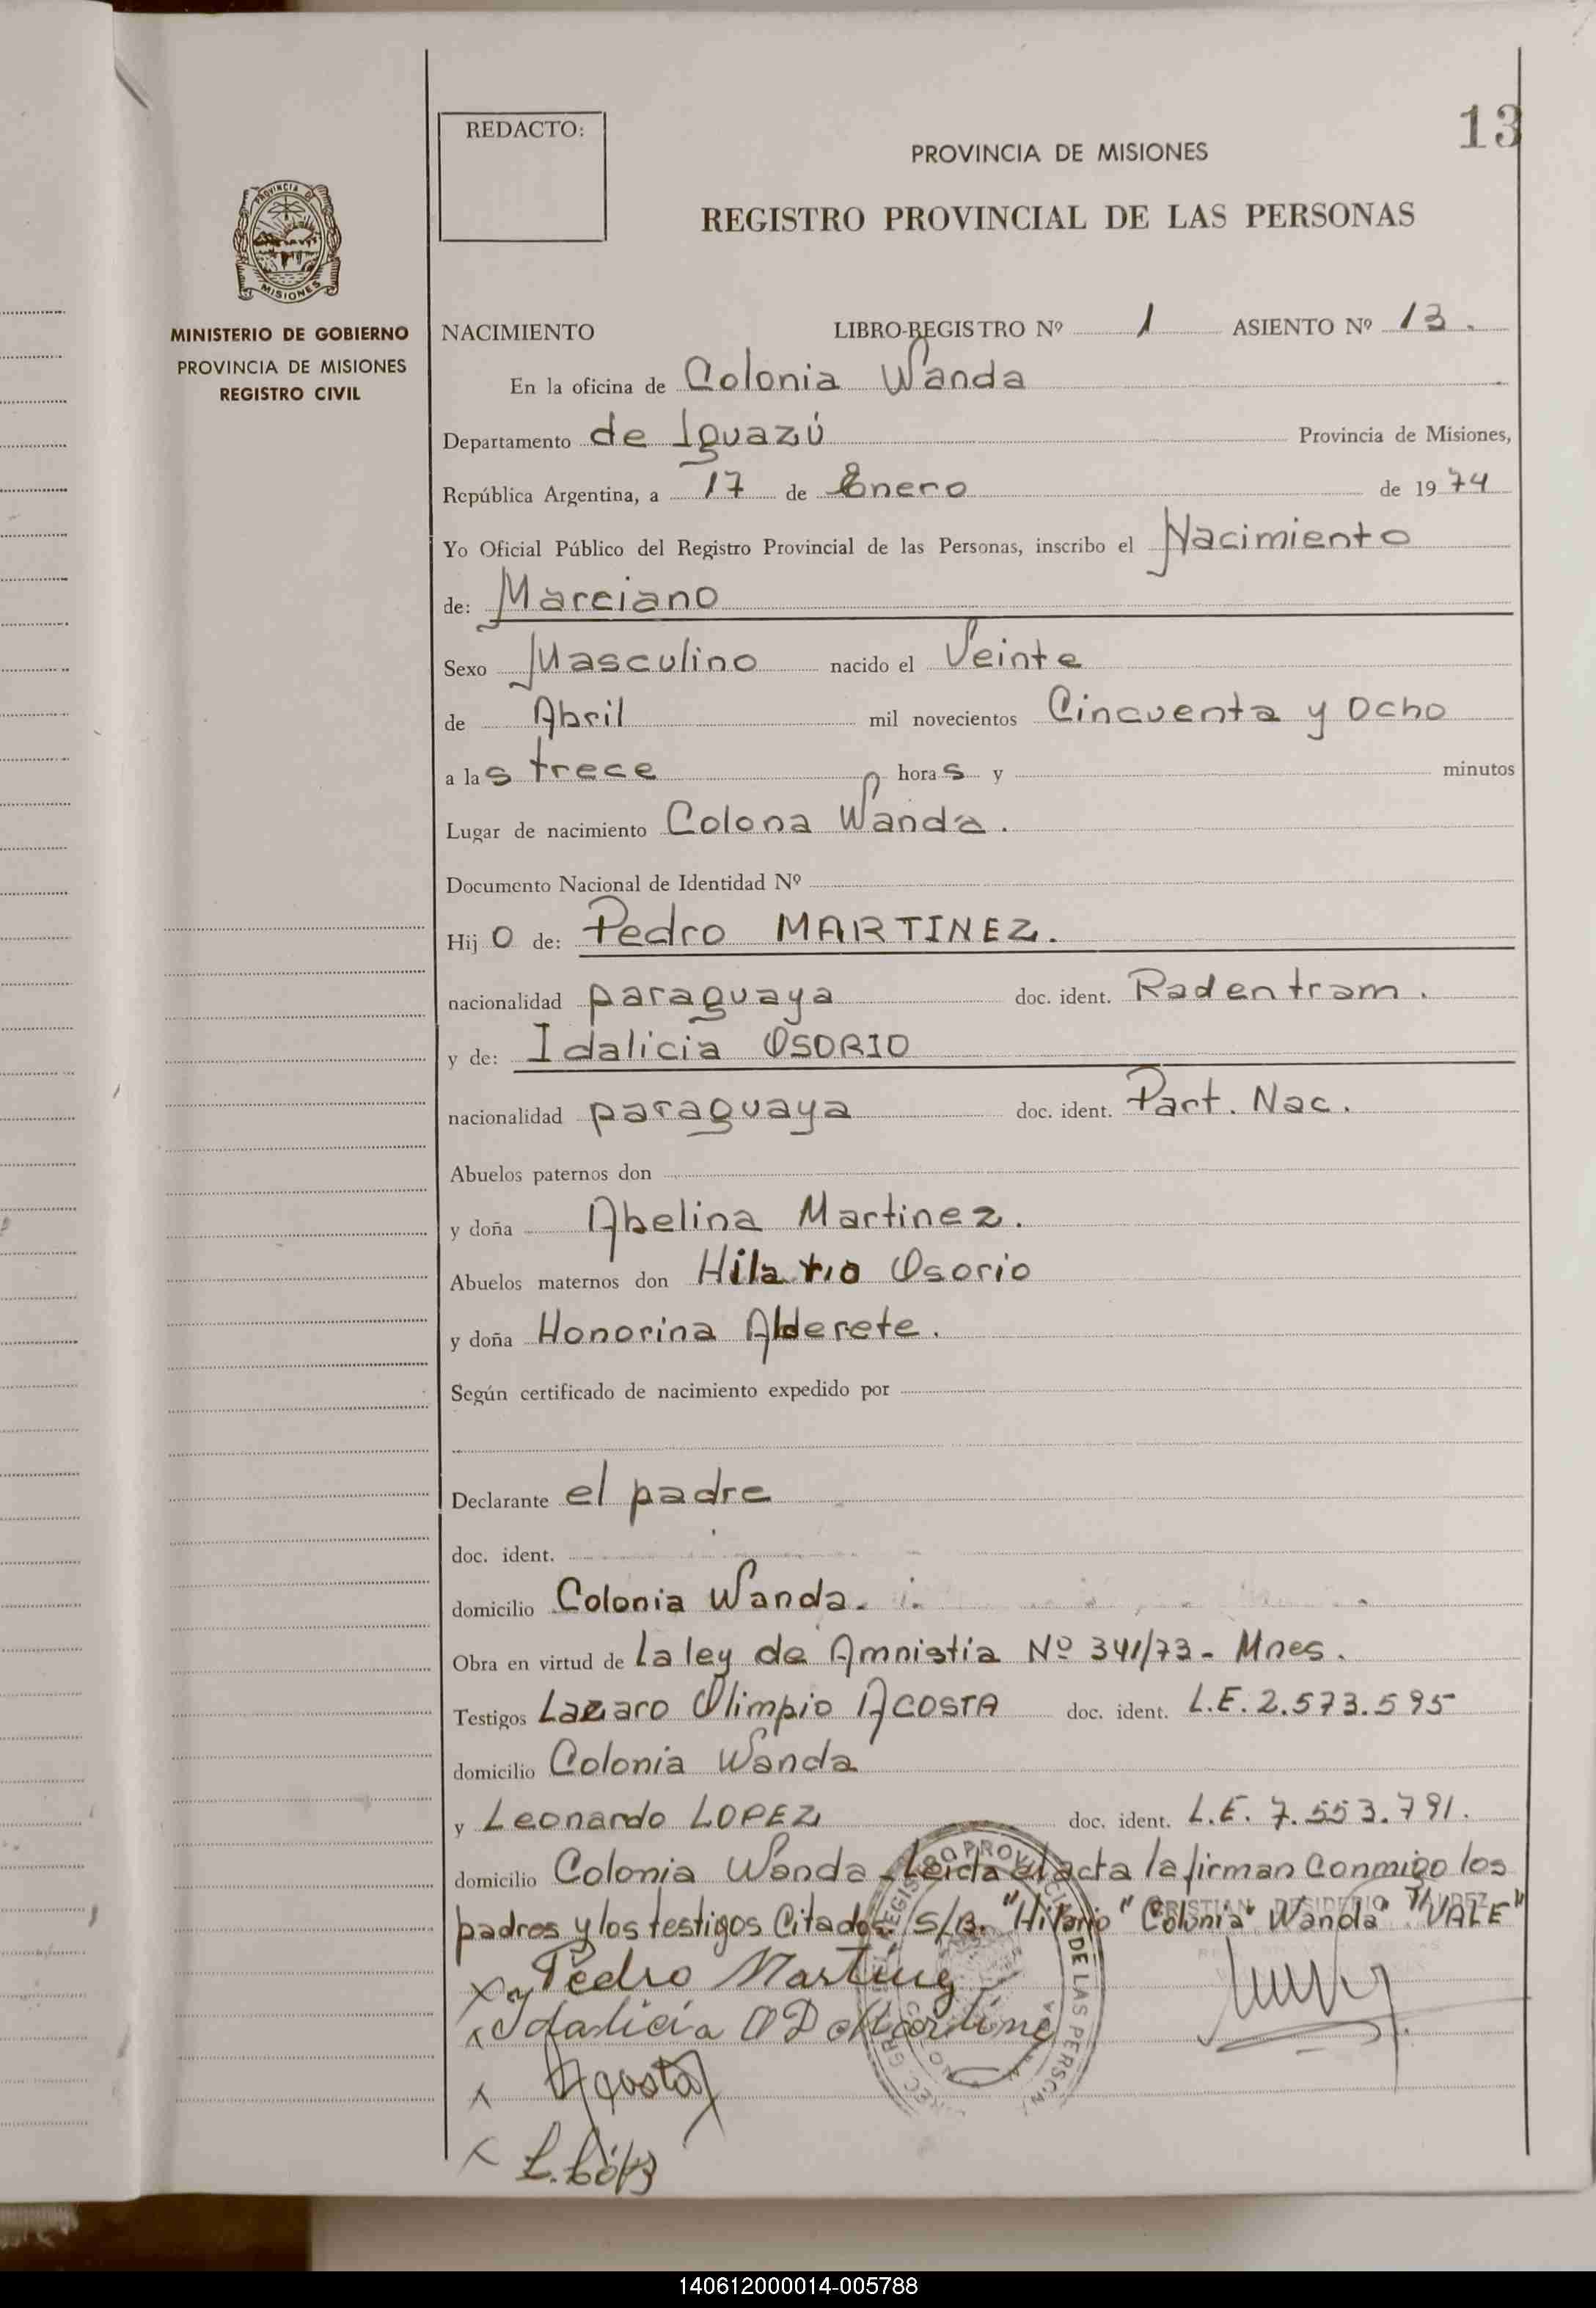 13
REDACTO:
PROVINCIA DE MISIONES
REGISTRO PROVINCIAL DE LAS PERSONAS
PROVINCIA DE
MISIONES
MINISTERIO DE GOBIERNO
PROVINCIA DE MISIONES
REGISTRO CIVIL
NACIMIENTO LIBRO-REGISTRO Nº 1 ASIENTO Nº 13.
En la oficina de Colonia Wanda
Departamento de Iguazú Provincia de Misiones,
República Argentina, a 17 de Enero de 1974
Yo Oficial Público del Registro Provincial de las Personas, inscribo el Nacimiento
de: Marciano
Sexo Masculino nacido el Veinte
de Abril mil novecientos Cincuenta y Ocho
a las trece horas y minutos
Lugar de nacimiento Colona Wanda.
Documento Nacional de Identidad Nº
Hijo de: Pedro MARTINEZ.
nacionalidad paraguaya doc. ident. Radentram.
y de: Idalicia OSORIO
nacionalidad paraguaya doc. ident. Part. Nac.
Abuelos paternos don
y doña Abelina Martinez.
Abuelos maternos don Hilario Osorio
y doña Honorina Alderete.
Según certificado de nacimiento expedido por
Declarante el padre
doc. ident.
domicilio Colonia Wanda.
Obra en virtud de La ley de Amnistia Nº 341/73 - Mnes.
Testigos Lazaro Olimpio ACOSTA doc. ident. L.E. 2.573.595
domicilio Colonia Wanda
y Leonardo LOPEZ doc. ident. L.E. 7.553.791.
domicilio Colonia Wanda - Leida el acta la firman Conmigo los
padres y los testigos Citados. S/B. "Hilario" "Colonia" Wanda" "VALE"
x Pedro Martinez
x Idalicia O D Martine
x Acosta
x L. López
140612000014-005788